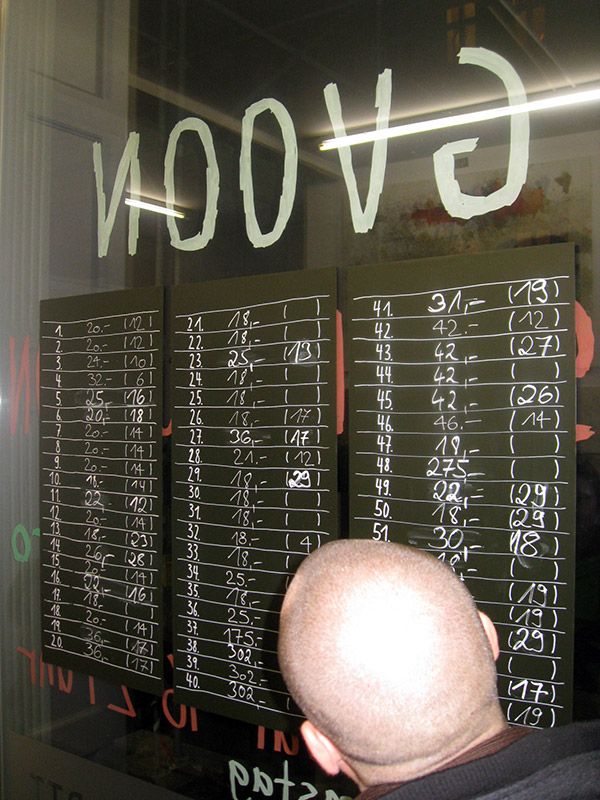 GVOON
1. 20.- (12)
2. 20.- (12)
3. 24.- (10)
4. 32.- (6)
5. 25.- (16)
6. 20,- (18)
7. 20.- (14)
8. 20.- (14)
9. 20.- (14)
10. 18.- (14)
11. 22 (12)
12. 20.- (14)
13. 18.- (23)
14. 26,- (28)
15. 20.- (14)
16. (16)
17. 18.- ( )
18. 20.- (14)
19. 36,- (17)
20. 36,- (17)
21. 18,- ( )
22. 18,- ( )
23 25,- (13)
24. 18,- ( )
25. 18,- ( )
26. 18,- (17)
27. 36,- (17)
28. 21.- (12)
29. 18,- (29)
30. 18,- ( )
31. 18,- ( )
32. 18.- (4)
33. 18,- ( )
34. 25.-
35. 18,-
36. 25.-
37. 175.-
38. 302,-
39. 302.-
40. 302,-
41. 31,- (19)
42. 42.- (12)
43. 42,- (27)
44. 42,- ( )
45. 42,- (26)
46. 46.- (14)
47. 18,- ( )
48. 275,- ( )
49. 22,- (29)
50. 18,- (29)
51. 30,- 18)
(19)
(19)
(29)
( )
(17)
(19)